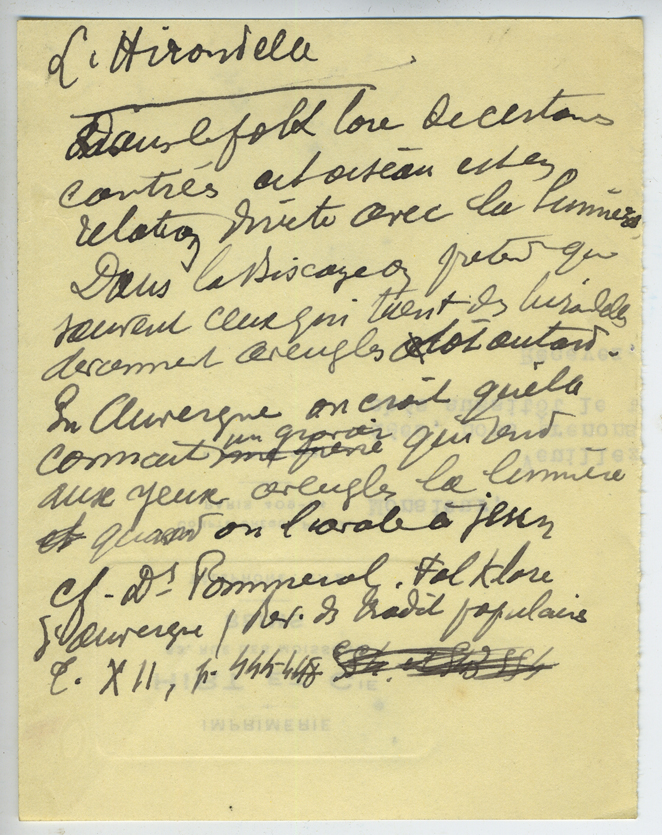 L'Hirondelle
Dans le folk lore de certaines
contrés cet oiseau est en
relation directe avec la lumière.
Dans la Biscaye on prétend que
souvent ceux qui tuent des hirondelles
deviennent aveugles tôt ou tard.
En Auvergne on croit qu'elle
connait un gravier qui rend
aux yeux aveugles la lumière
quand on l'avale à jeun
cf. Dr Pommerol. Folklore
d'Auvergne, Rev. des tradit populaires
T. XII, p.
IMPRIMERIE